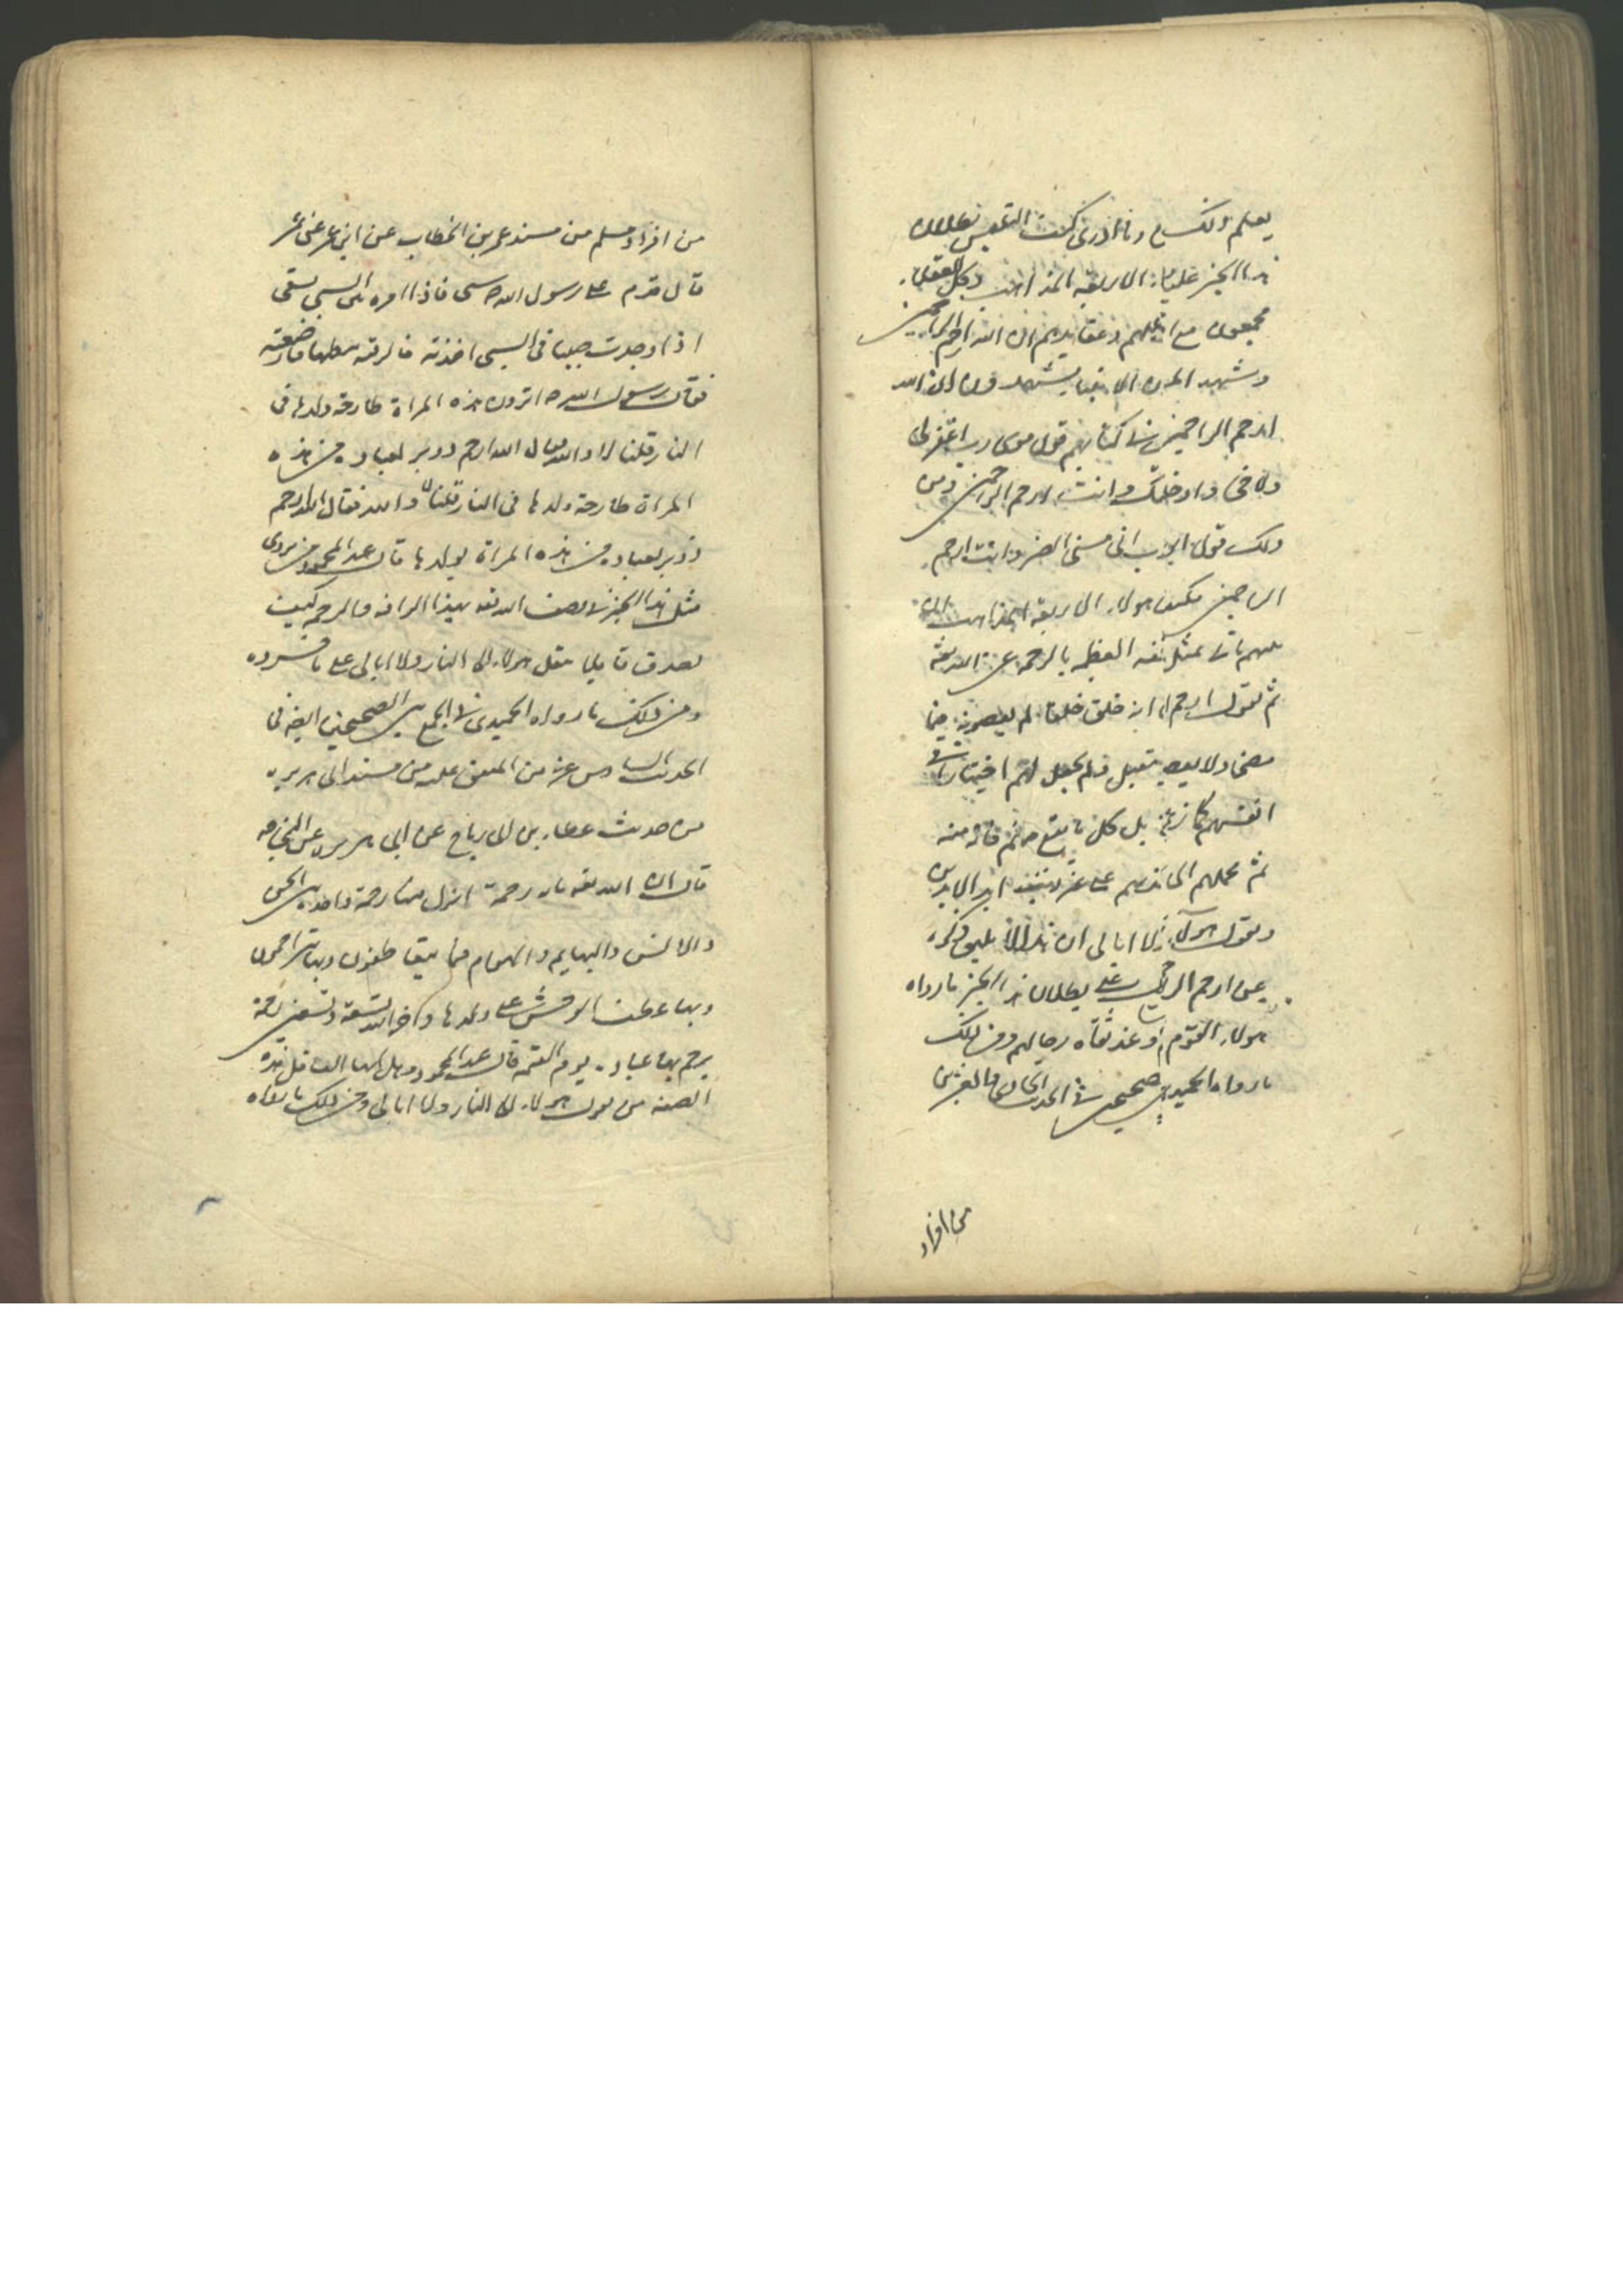 يعلم ذلك و ما ادرى كيف التبس بطلان
هذا الخبر على الاربعة المذاهب وكل العقلاء
مجمعون مع انهم عقايدهم ان الله ارحم الراحمين
و شهد ان الله
ارحم الراحمين فى كتابهم قول موسى رب اغفر لى
ولاخى وادخلنا وانت ارحم الراحمين ومن
ذلك قول ايوب انى مسنى الضر وانت ارحم
الراحمين فكيف هولاء الاربعة المذاهب
العظمة بالرحمة عن الله تعه
ثم يقول ارحم خلق خلقا لم يعصوه فيما
مضى ولا فيما يستقبل ولم يجعل لهم اختيارا فى
انفسهم بل كل ما يقع منهم فانه منه
ثم يحملهم الى ابد الابدين
ويقول هولاء ولا ابالى ان هذا لا يليق ذكره
عن ارحم الراحمين بطلان هذا الخبر ما رواه
هولاء القوم عند ثقاة رجالهم ومن ذلك
ما رواه الحميدى فى الحديث الحادى والعشرين
من افراد
من افراد مسلم من مسند عمر بن الخطاب عن ابن عمر عن عمر
قال قدم على رسول الله ص سبى فاذا امره من السبى تسقى
اذا وجدت صبيا فى السبى اخذته فالزقته ببطنها فارضعته
فقال رسول الله ص اترون هذه المراة طارحة ولدها فى
النار قلنا لا والله قال الله ارحم بعباده من هذه
المراة طارحة ولدها فى النار قلنا لا والله فقال الله ارحم
بعباده من هذه المراة بولدها قال عبد المحمود من يروى
مثل هذا الخبر فى وصف الله تعه بهذا الرافة والرحمة كيف
يصدق قايلا يقل هولاء الى النار ولا ابالى على ما فسروه
ومن ذلك ما رواه الحميدى فى الجمع بين الصحيحين ايضا فى
الحديث السادس عشر من المتفق عليه من مسند ابى هريره
من حديث عطاء بن ابى رباح عن ابى هريره عن النبى ص
قال ان الله تعه مايه رحمة انزل منها رحمة واحده بين الجن
والانس والبهايم والهوام فبها يتعاطفون وبها يتراحمون
وبها تعطف الوحش على ولدها واخر الله تسعة وتسعين رحمة
يرحم بها عباده يوم القيمه قال عبد المحمود
الصفه من يقول هولاء الى النار ولا ابالى ومن ذلك ما رواه